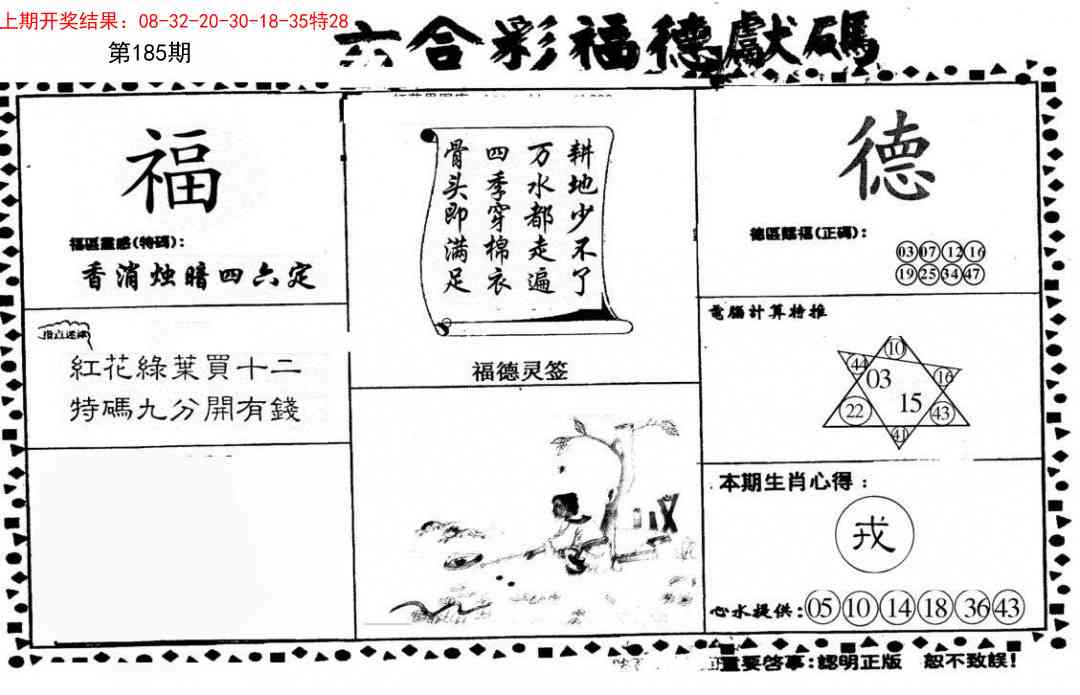 上期开奖结果：08-32-20-30-18-35特28
第185期
六合彩福德獻碼
福
福區靈感(特碼)：
香消烛暗四六定
紅花綠葉買十二
特碼九分開有錢
耕地少不了
万水都走遍
四季穿棉衣
骨头即满足
福德灵签
德
德區賜福(正碼)：
03 07 12 16
19 25 34 47
電腦計算特推
10
44 03 16
22 15 43
41
本期生肖心得：
戎
心水提供：05 10 14 18 36 43
重要啓事：認明正版 恕不致誤！